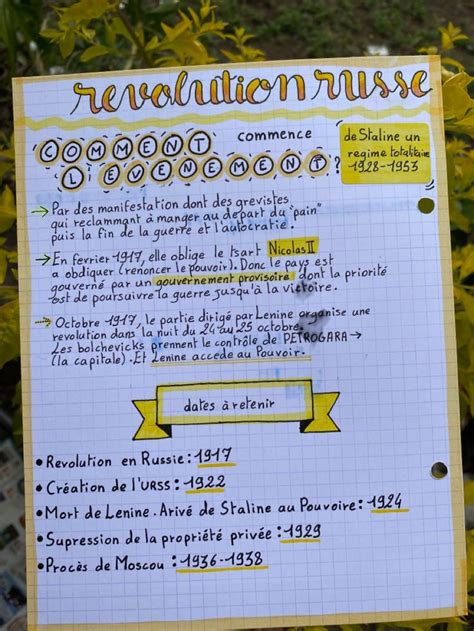 revolution russe
COMMENT commence
L'EVENEMENT ?
de Staline un
regime totalitaire
1928-1953
→ Par des manifestation dont des grevistes
qui reclammant à manger au depart du "pain"
puis la fin de la guerre et l'autocratie.
→ En fevrier 1917, elle oblige le tsart Nicolas II
a abdiquer (renoncer le pouvoir). Donc le pays est
gouverné par un gouvernement provisoire dont la priorité
est de poursuivre la guerre jusqu'à la victoire.
→ Octobre 1917, le partie dirigé par Lenine organise une
revolution dans la nuit du 24 au 25 octobre.
Les bolchevicks prement le contrôle de PETROGARA →
(la capitale). Et Lenine accède au Pouvoir.
dates à retenir
• Revolution en Russie : 1917
• Création de l'URSS : 1922
• Mort de Lenine. Arivé de Staline au Pouvoire : 1924
• Supression de la propriété privée : 1929
• Procès de Moscou : 1936-1938